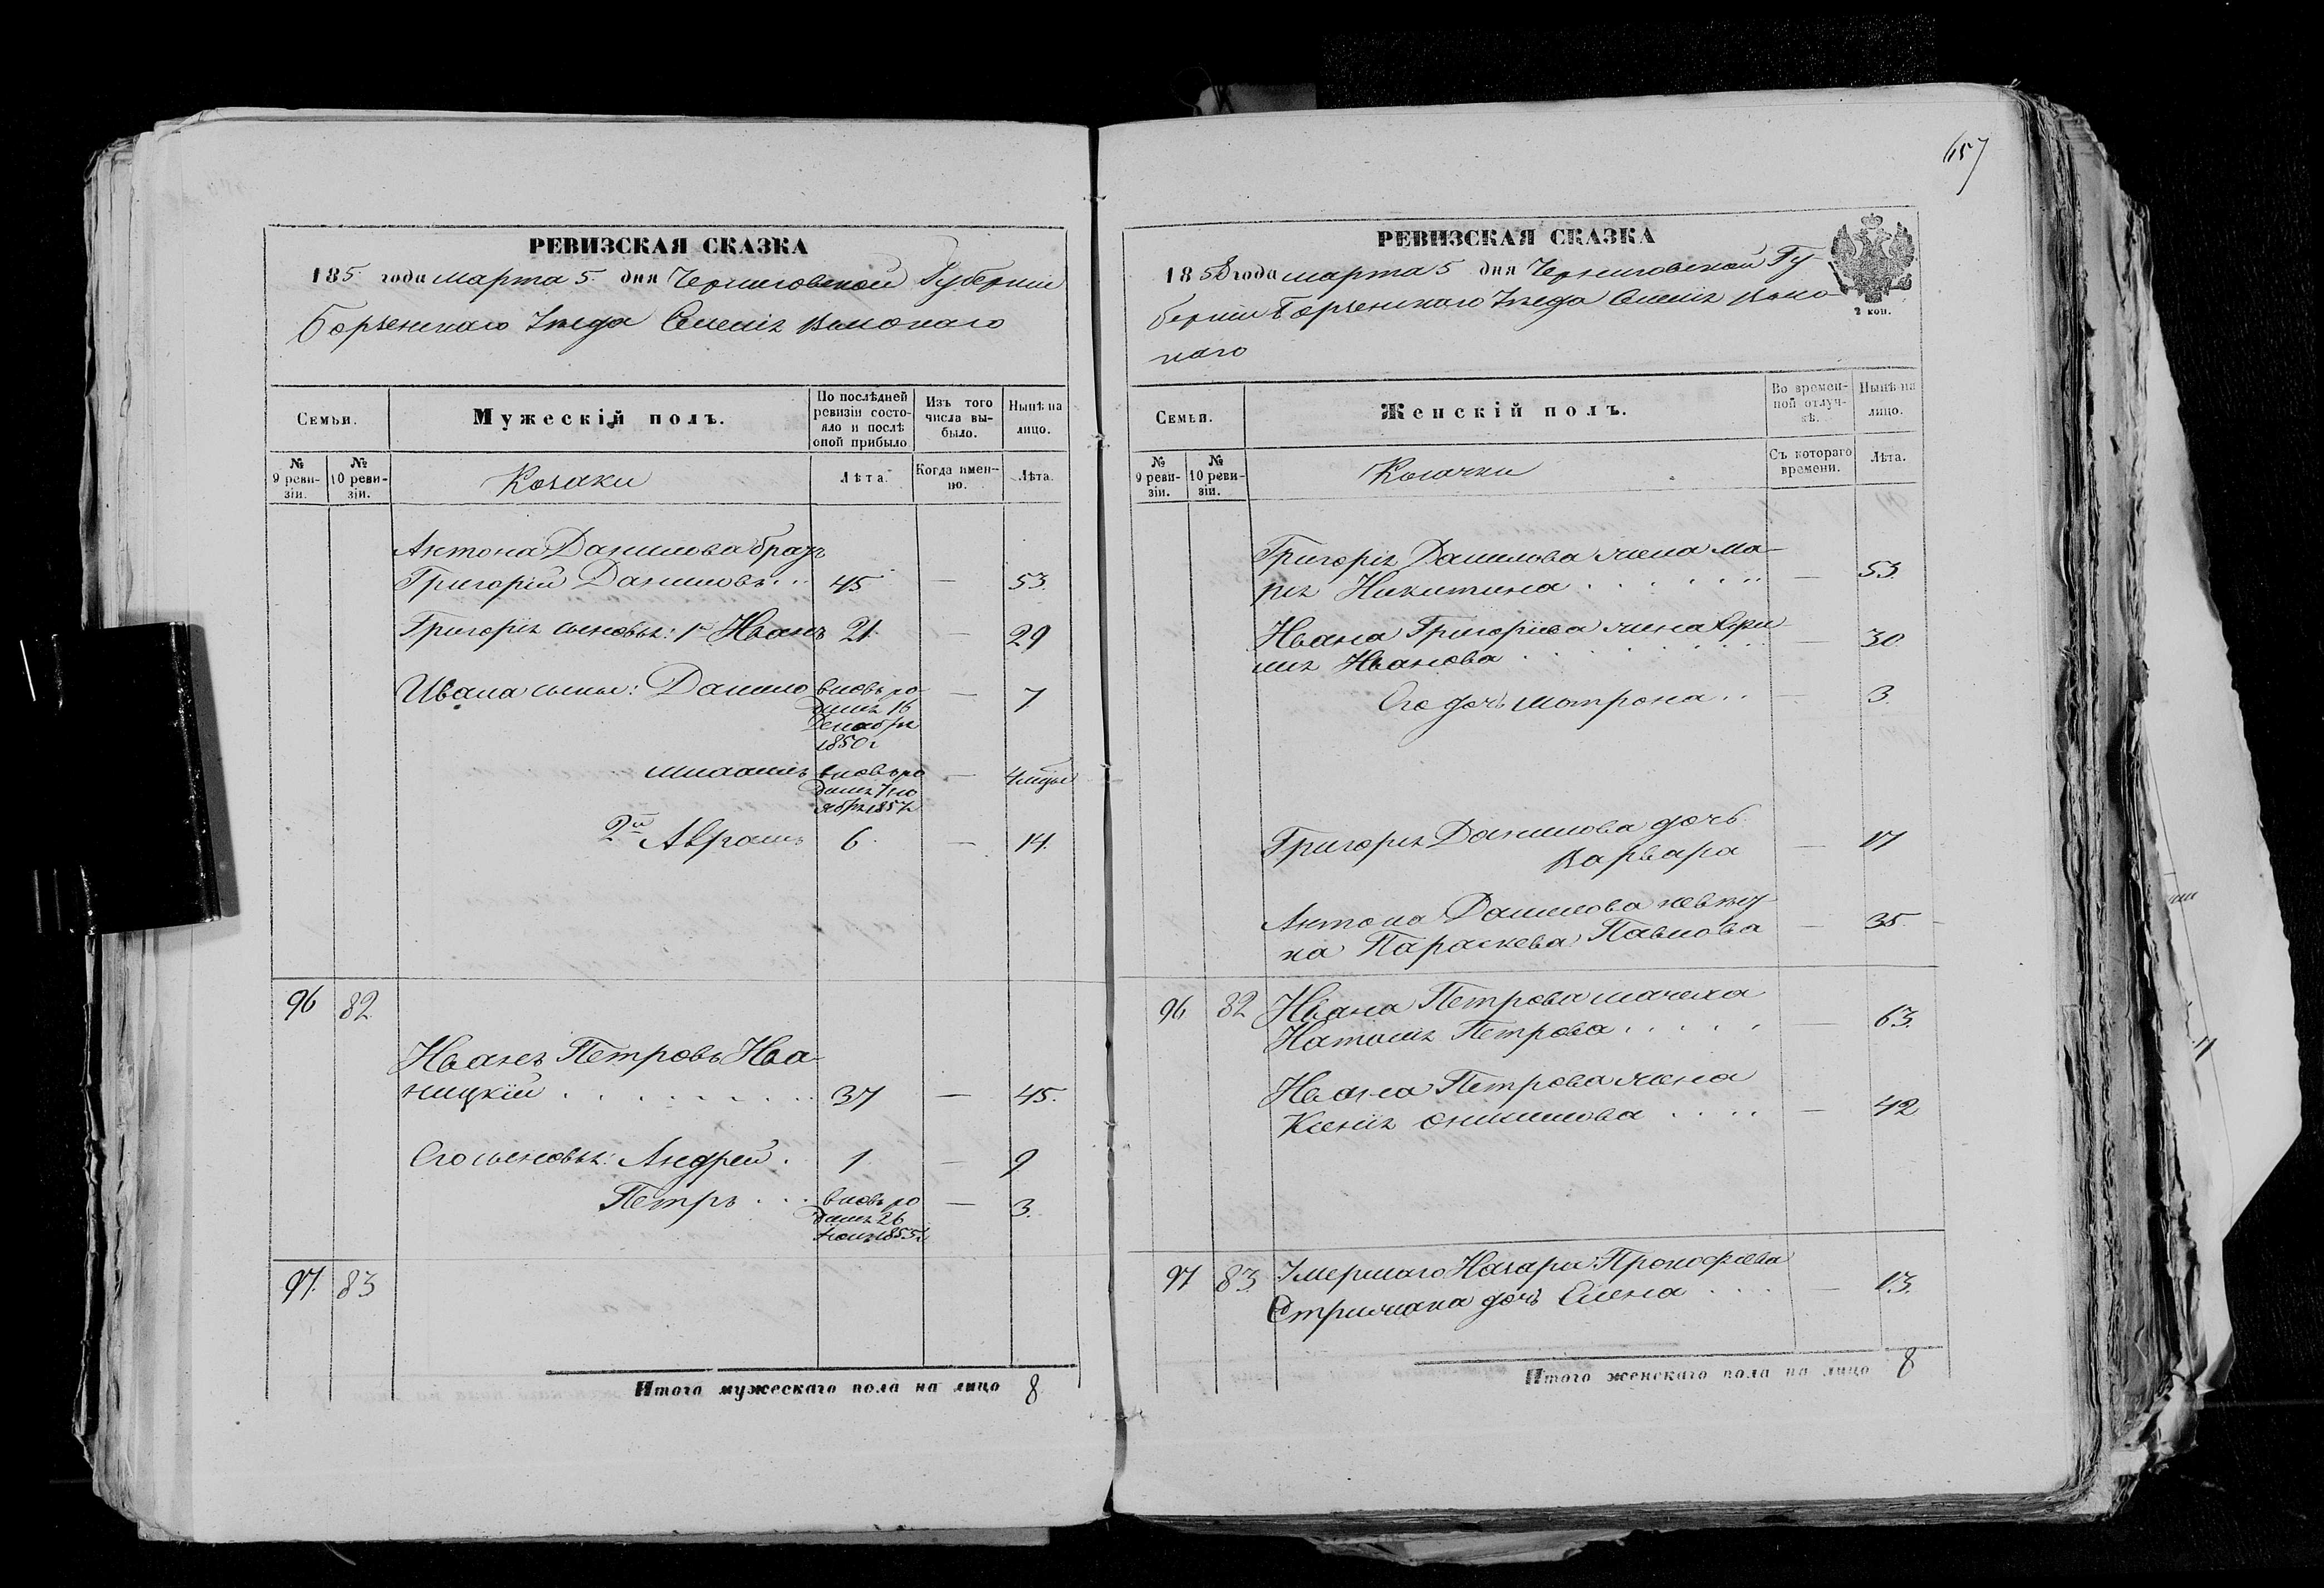 657
РЕВИЗСКАЯ СКАЗКА
185 года марта 5 дня Черниговской Губерніи
Борзенскаго Уезда Селенія Високаго
Семьи.
Мужескій полъ.
По послѣдней ревизіи состояло и послѣ оной прибыло
Изъ того числа выбыло.
Нынѣ на лицо.
№ 9 ревизіи.
№ 10 ревизіи.
Козаки
Лѣта.
Когда именно.
Лѣта.
Антона Данилова братъ
Григорій Даниловъ 45 — 53.
Григорія сыновья: 1й Иванъ 21 — 29
Ивана сынъ: Данило вновь ро- — 7
дился 16
Декабря
1850 г
Михаилъ вновь ро — 4 мцы
дился 7 но
ября 1857 г
2й Аврамъ 6 — 14.
96 82
Иванъ Петровъ Ива-
ницкій 37 — 45.
Его сыновья: Андрей. 1 — 9
Петръ вновь ро — 3.
дился 26
1855 г
97. 83
Итого мужескаго пола на лицо 8
РЕВИЗСКАЯ СКАЗКА
1858 года марта 5 дня Черниговской Гу-
берніи Борзенскаго Уезда Селенія Висо-
каго
2 коп.
Семьи.
Женскій полъ.
Во временной отлучкѣ.
Нынѣ на лицо.
№ 9 ревизіи.
№ 10 ревизіи.
Козачки
Съ котораго времени.
Лѣта.
Григорія Данилова жена Ма-
рія Никитина — 53.
Ивана Григоріева жена
Иванова — 30
Его дочь Мотрона — 3.
Григорія Данилова дочь
Варвара — 17
Антона Данилова невест-
ка Параскева Павлова — 35
96 82 Ивана Петрова мачеха
Наталія Петрова — 63.
Ивана Петрова жена
Ксенія — 42
97 83 Умершаго Назарія Прокофіева
дочь Елена — 13.
Итого женскаго пола на лицо 8